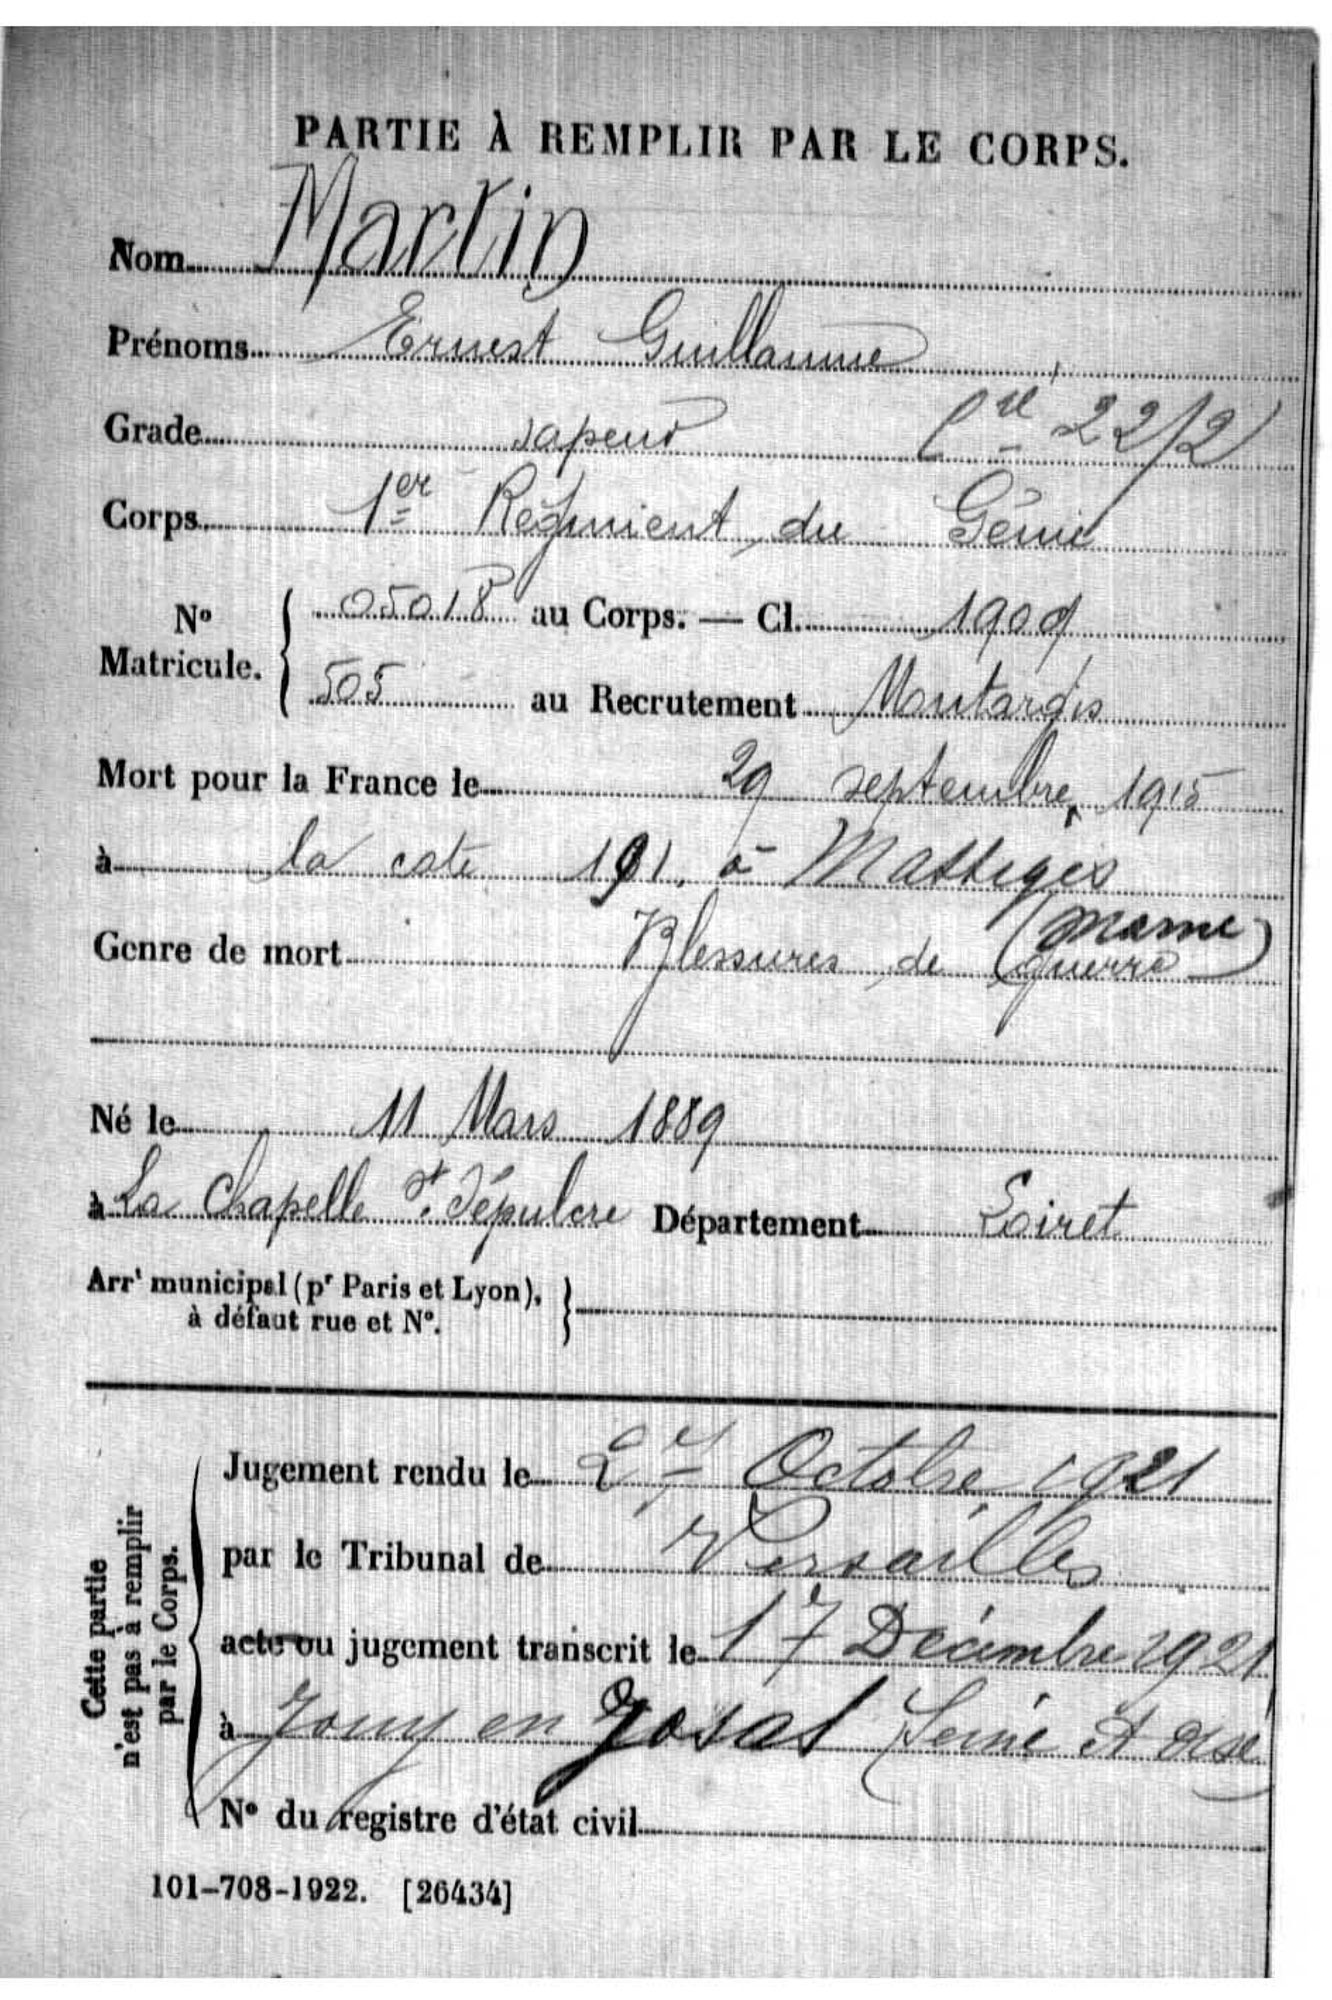 PARTIE À REMPLIR PAR LE CORPS.
Nom Martin
Prénoms Ernest Guillaume
Grade sapeur Cie 22/2
Corps 1er Régiment du Génie
No
Matricule.
05018 au Corps. — Cl. 1909
505 au Recrutement Montargis
Mort pour la France le 29 septembre 1915
à la cote 191, à Massiges
(Marne)
Genre de mort Blessures de guerre
Né le 11 Mars 1889
à La Chapelle St. Sépulcre Département Loiret
Arrt municipal (pr Paris et Lyon),
à défaut rue et No.
Cette partie
n'est pas à remplir
par le Corps.
Jugement rendu le 27 Octobre 1921
par le Tribunal de Versailles
acte ou jugement transcrit le 17 Décembre 1921
à Jouy en Josas (Seine et Oise)
No du registre d'état civil
101-708-1922. [26434]